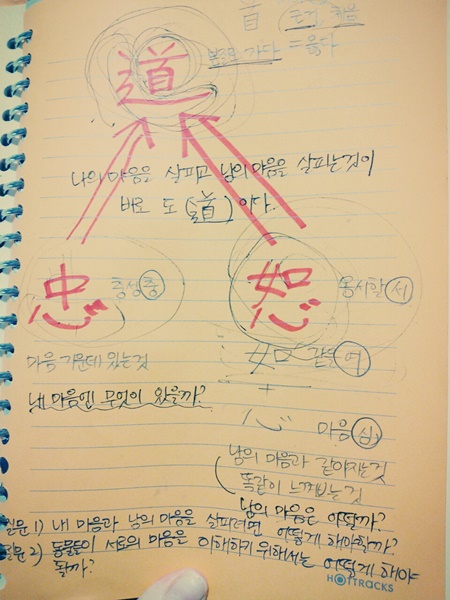 道 근거, 책임
바로 가다 = 옳다
道
나의 마음을 살피고 남의 마음을 살피는 것이
바로 도(道)이다.
忠 충성 충
恕 용서할 서
마음 가운데 있는 것
如 같을 여
+
내 마음엔 무엇이 있을까?
心 마음 심
남의 마음과 같아지는 것
똑같이 느껴보는 것
남의 마음은 어떨까?
질문 1) 내 마음과 남의 마음을 살피려면 어떻게 해야할까?
질문 2) 동물들이 서로의 마음을 이해하기 위해서는 어떻게 해야
될까?
HOTTRACKS